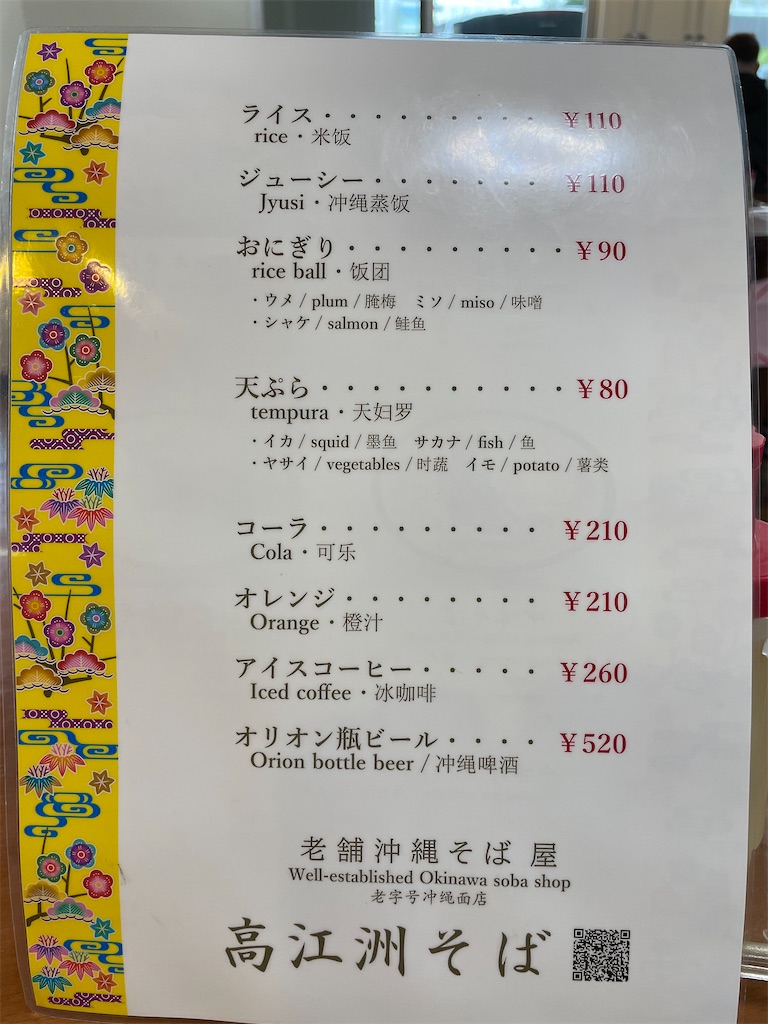 ライス・・・・・・・・・¥110
rice・米饭
ジューシー・・・・・・・¥110
Jyusi・冲绳蒸饭
おにぎり・・・・・・・・・¥90
rice ball・饭团
・ウメ / plum / 腌梅　ミソ / miso / 味噌
・シャケ / salmon / 鲑鱼
天ぷら・・・・・・・・・・¥80
tempura・天妇罗
・イカ / squid / 墨鱼　サカナ / fish / 鱼
・ヤサイ / vegetables / 时蔬　イモ / potato / 薯类
コーラ・・・・・・・・・¥210
Cola・可乐
オレンジ・・・・・・・・¥210
Orange・橙汁
アイスコーヒー・・・・・¥260
Iced coffee・冰咖啡
オリオン瓶ビール・・・・¥520
Orion bottle beer / 冲绳啤酒
老舗沖縄そば屋
Well-established Okinawa soba shop
老字号冲绳面店
高江洲そば